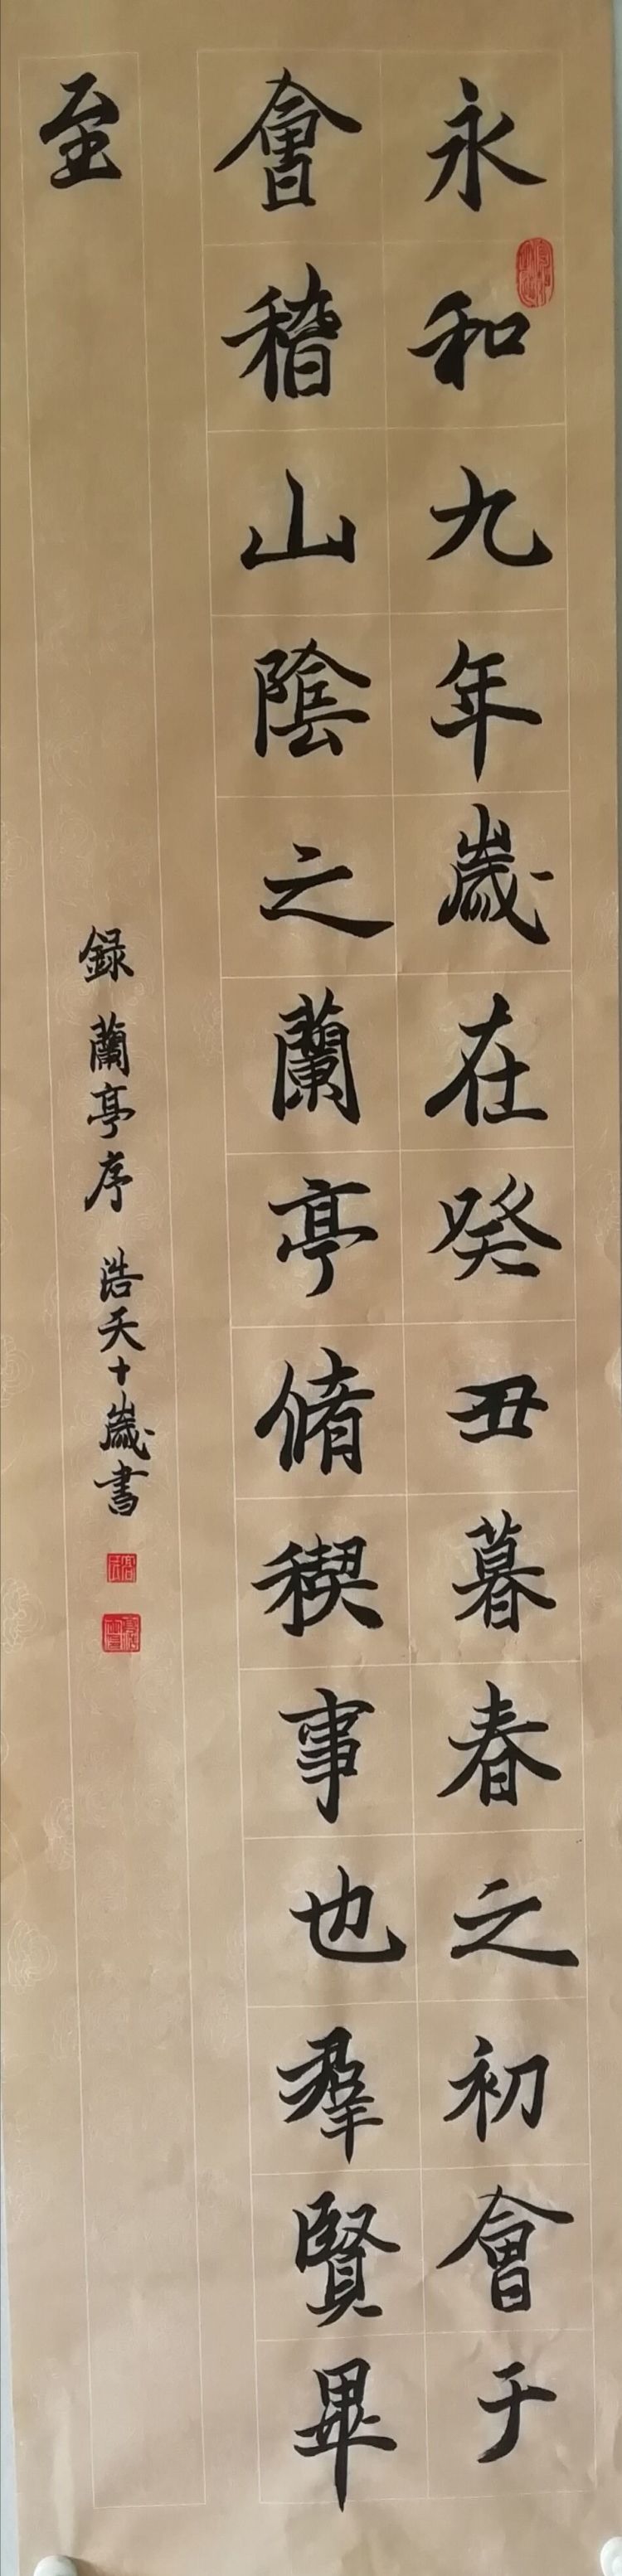 永和九年歲在癸丑暮春之初會于
會稽山陰之蘭亭脩稧事也羣賢畢
至
録蘭亭序 浩天十歲書